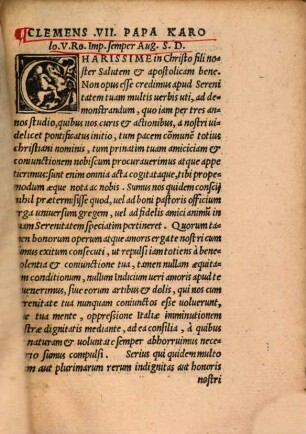 CLEMENS .VII. PAPA KARO
lo.V.Ro.Imp.semper Aug. S. D.
CHARISSIME in Christo fili no
ster Salutem & apostolicam bene.
Non opus esse credimus apud Sereni
tatem tuam multis verbis uti, ad de
monstrandum, quo iam per tres an
nos studio, quibus nos curis & actionibus, a nostri ui
delicet pontificatus initio, tum pacem cōmunē totius
christiani nominis, tum priuatim tuam amiciciam &
coniunctionem nobiscum procurauerimus atque appe
tiuerimus: sunt enim omnia acta cogitataque, tibi prope
modum æque nota ac nobis. Sumus nos quidem conscij
nihil prætermisisse quod, uel ad boni pastoris officium
erga uniuersum gregem, uel ad fidelis amici animū in
uam Serenitatem speciatim pertineret. Quorum ta
men bonorum operum atque amoris ergate nostri cum
imus exitum consecuti, ut repulsi iam totiens à bene
olentia & coniunctione tua, tamen nullum æqua
am conditionem, nullum Indicium ueri amoris apud te
nuenerimus, siue eorum artibus & dolis, qui nos cum
erenitate tua nunquam coniunctos esse uoluerunt,
ue tua mente, oppressione Italiæ imminutionem
stræ dignitatis mediante, ad ea consilia, à quibus
naturam & uoluntate semper abhorruimus neces
ario sumus compulsi. Serius qui quidem multo
am aut plurimarum rerum indignitas aut honoris
nostri